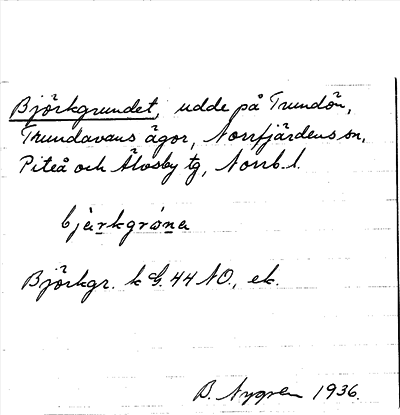 Björkgrundet, udde på Trundön,
Trundavans ägor, Norrfjärdens sn,
Piteå och Älvsby tg, Norrb. l.
Björkgr. k G. 44 NO., ek.
B. Nygren 1936.